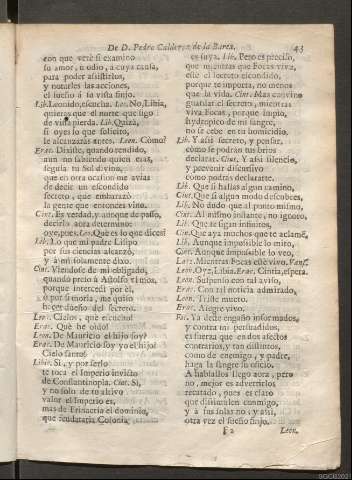 De D. Pedro Calderon de la Barca. 43
con que veré si examino
su amor, u odio, a cuya causa,
para poder assistirlos,
y notarles las acciones,
el sueño á la vista finjo.
Lib. Leonido, escucha. Leo. No, Libia,
quieras que el norte que sigo
de vista pierda. Lib. Quizá,
si oyes lo que solicito,
le alcanzarás antes. Leon. Cómo?
Erac. Dixiste, quando rendido,
aun no sabiendo quien eras,
seguia tu Sol divino,
que en otra ocasion me avias
de decir un escondido
secreto, que embarazó
la gente que entonces vino.
Cint. Es verdad, y aunque de passo,
decirlo aora determino:
oye, pues. Leo. Que es lo que dices?
Lib. Lo que mi padre Lisipo
por sus ciencias alcanzó,
y á mi solamente dixo.
Cint. Viendose de mi obligado,
quando preso á Astolfo vimos,
porque intercedí por él,
ó por si moria, me quiso
hacer dueño del secreto.
Leon. Cielos, que escucho!
Erac. Qué he oido!
Leon. De Mauricio el hijo soy?
Erac. De Mauricio soy yo el hijo?
Cielo santo!
Libia. Si, y por serlo
te toca el Imperio invicto
de Constantinopla. Cint. Si,
y no solo de tu altivo
valor el Imperio es,
mas de Trinacria el dominio,
que feudataria Colonia
es suya. Lib. Pero es preciso,
que mientras que Focas viva,
esté el secreto escondido,
porque te importa, no menos
que la vida. Cint. Mas convino
guardar el secreto, mientras
viva Focas, porque impio,
hydropico de mi sangre,
no se cebe en tu homicidio.
Lib. Y assi secreto, y pensar,
como se podrán tus brios
declarar. Cint. Y assi silencio,
y prevenir discursivo
como podrás declararte.
Lib. Que si hallas algun camino,
Cint. Que si algun modo descubres,
Lib. No dudo que al punto mismo,
Cint. Al mismo instante, no ignoro,
Lib. Que te sigan infinitos,
Cin. Que aya muchos que te aclamen,
Lib. Aunque impossible lo miro,
Cint. Aunque impossible lo veo,
Las 2. Mientras Focas esté vivo. Vans.
Leon. Oye, Libia. Erac. Cintia, espera.
Leon. Suspenso con tal aviso,
Erac. Con tal noticia admirado,
Leon. Triste muero.
Erac. Alegre vivo.
Foc. Ya decir engaño informados,
y contra mi persuadidos,
es fuerza que en dos afectos
contrarios, y tan distintos,
como de enemigo, y padre,
haga la sangre su oficio.
A hablallos llego aora, pero
no, mejor es advertirlos
recatado, pues es claro
que dissimulen conmigo,
y á sus solas no; y assi,
otra vez el sueño finjo.
F 2 Leon.